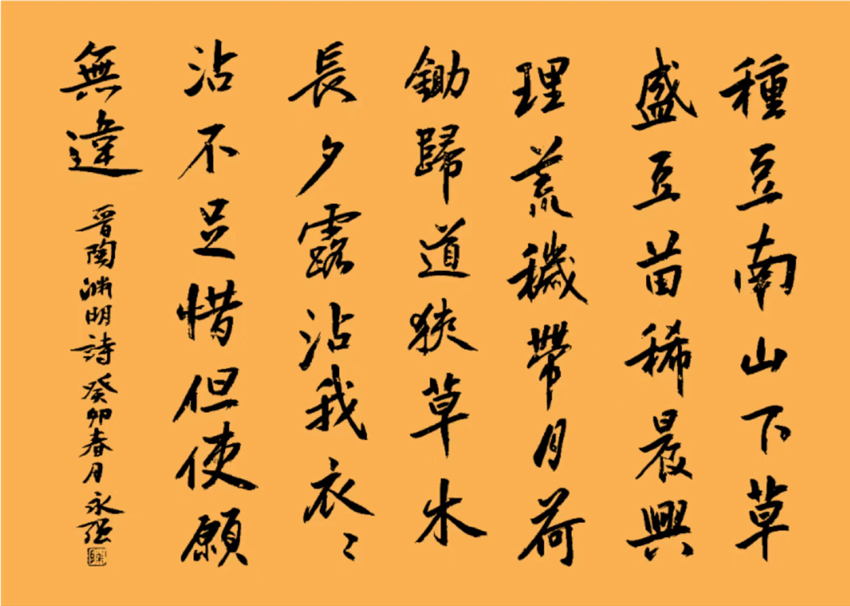 種豆南山下草
盛豆苗稀晨興
理荒穢帶月荷
鋤歸道狹草木
長夕露沾我衣〻
沾不足惜但使願
無違
晋陶渊明詩癸卯春月永强